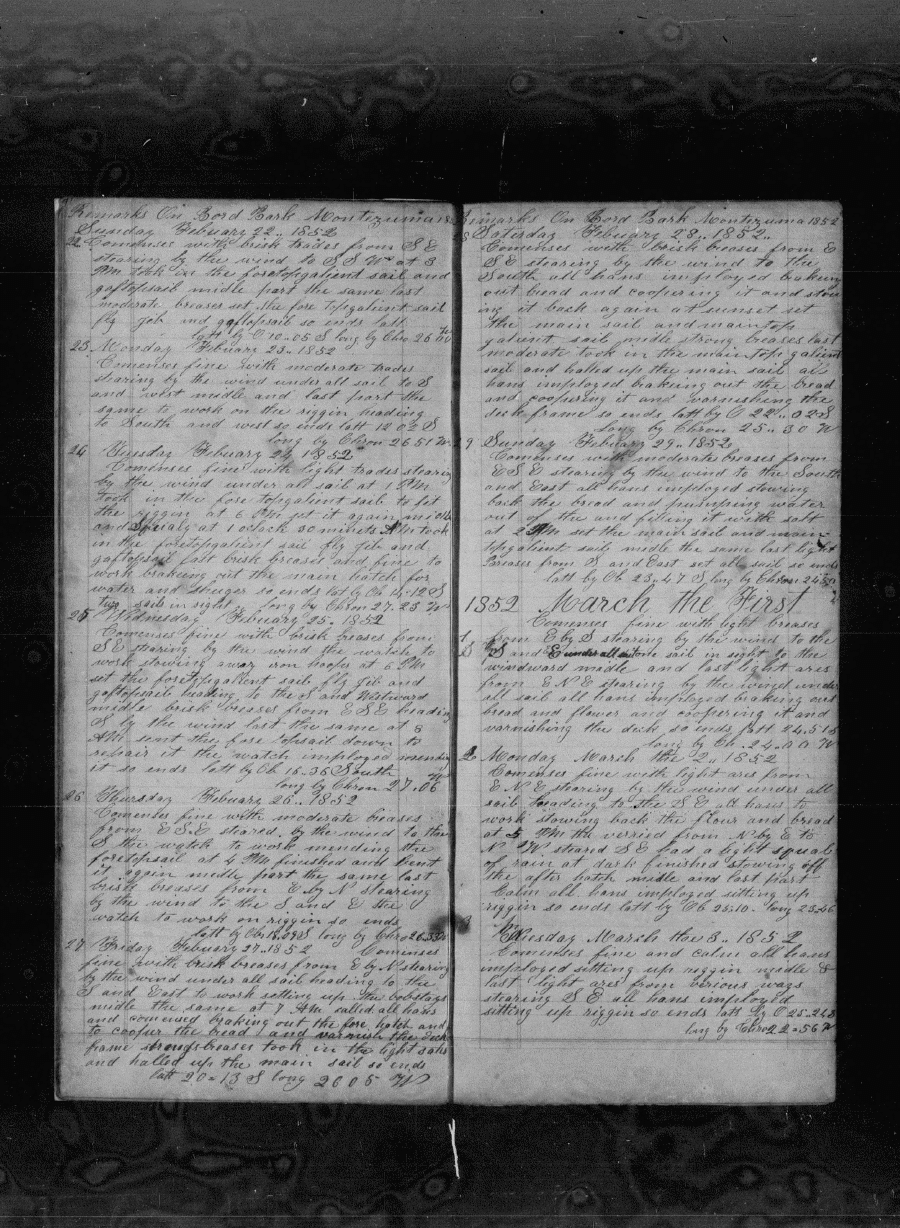 Remarks On Bord Bark Montezuma 18
Sunday Febuary 22.. 1852
22 Comenses with brisk trades from S E
stearing by the wind to S S W at 8
PM took in the foretopgalient sail and
gaftopsail midle part the same last
moderate breases set the fore topgalient sail
fly jib and gaftopsail so ends latt
latt by O 10-05 S long by Chro 26
23 Monday Febuary 23.. 1852
Comenses fine with moderate trades
stearing by the wind under all sail to S
and west midle and last part the
same to work on the riggin heading
to South and west so ends latt 12 02 S
long by Chron 26 51 W
24 Tuesday Febuary 24 1852
Comenses fine with light trades stearing
by the wind under all sail at 1 PM
took in the fore topgalient sail to fit
the riggin at 6 PM set it again midle
and at 1 oclock 30 minets AM took
in the foretopgalient sail fly jib and
gaftopsail last brisk breases and fine to
work brakeing out the main hatch for
water and shuger so ends latt by Ob 14-12 S
two sails in sight long by Chron 27.25 W
25 Wednesday Febuary 25. 1852
Comenses fine with brisk breases from
S E stearing by the wind the watch to
work stowing away iron hoops at 6 PM
set the foretopgalient sail fly jib and
gaftopsail heading to the S and Westward
midle brisk breases from E S E heading
S by the wind last the same at 8
AM sent the fore topsail down to
repair it the watch imployed mending
it so ends latt by Ob 15-36 South
long by Chron 27.06
26 Thursday Febuary 26.. 1852
Comenses fine with moderate breases
from E S E steared by the wind to the
S the watch to work mending the
foretopsail at 4 PM finished and bent
it again midle part the same last
brisk breases from E by N stearing
by the wind to the S and E the
watch to work on riggin so ends
latt by Obs 18.09 S long by Chro 26
27 Friday Febuary 27. 1852 Comenses
fine with brisk breases from E by N stearing
by the wind under all sail heading to the
S and East to work setting up the bobstays
midle the same at 7 AM called all hans
and comenced braking out the fore hatch and
to cooper the bread and varnish the deck
frame strong breases took in the light sails
and halled up the main sail so ends
latt 20-13 S long 2605 W
Remarks On Bord Bark Montezuma 1852
28 Saturday Febuary 28.. 1852..
Comenses with brisk breases from E
S E stearing by the wind to the
South all hans imployed brakeing
out bread and coopering it and stow
ing it back again at sunset set
the main sail and maintop
galient sail midle strong breases last
moderate took in the maintop galient
sail and halled up the main sail all
hans imployed brakeing out the bread
and coopering it and varnishing the
deck frame so ends latt by O 22..02 S
Long by Chron 25..30 W
29 Sunday Febuary 29.. 1852
Comenses with moderate breases from
E S E stearing by the wind to the South
and East all hans imployed stowing
back the bread and pumping water
out of the and filling it with salt
at 2 PM set the main sail and main
topgalient sail midle the same last light
breases from S and East set all sail so ends
latt by Ob 23-47 S long by Chron 24
1852 March the First
Comenses fine with light breases
1 from E by S stearing by the wind to the
S and E under all sail one sail in sight to the
windward midle and last light ares
from E N E stearing by the wind under
all sail all hans imployed braking out
bread and flower and coopering it and
varnishing the deck so ends latt 24.51 S
long by Ch. 24..00 W
2 Monday March the 2.. 1852
Comenses fine with light ares from
E N E stearing by the wind under all
sail heading to the S E all hans to
work stowing back the flour and bread
at 5 PM the verried from N by E to
N W steared S E had a light squal
of rain at dark finished stowing off
the after hatch midle and last part
Calm all hans imployed sitting up
riggin so ends latt by Ob 25.10- long 23.46
3 Tuesday March the 3.. 1852
Comenses fine and calm all hans
imployed sitting up riggin midle &
last light ares from verious ways
stearing S E all hans imployed
sitting up riggin so ends latt by O 25-24 S
long by Chro 22-56 W